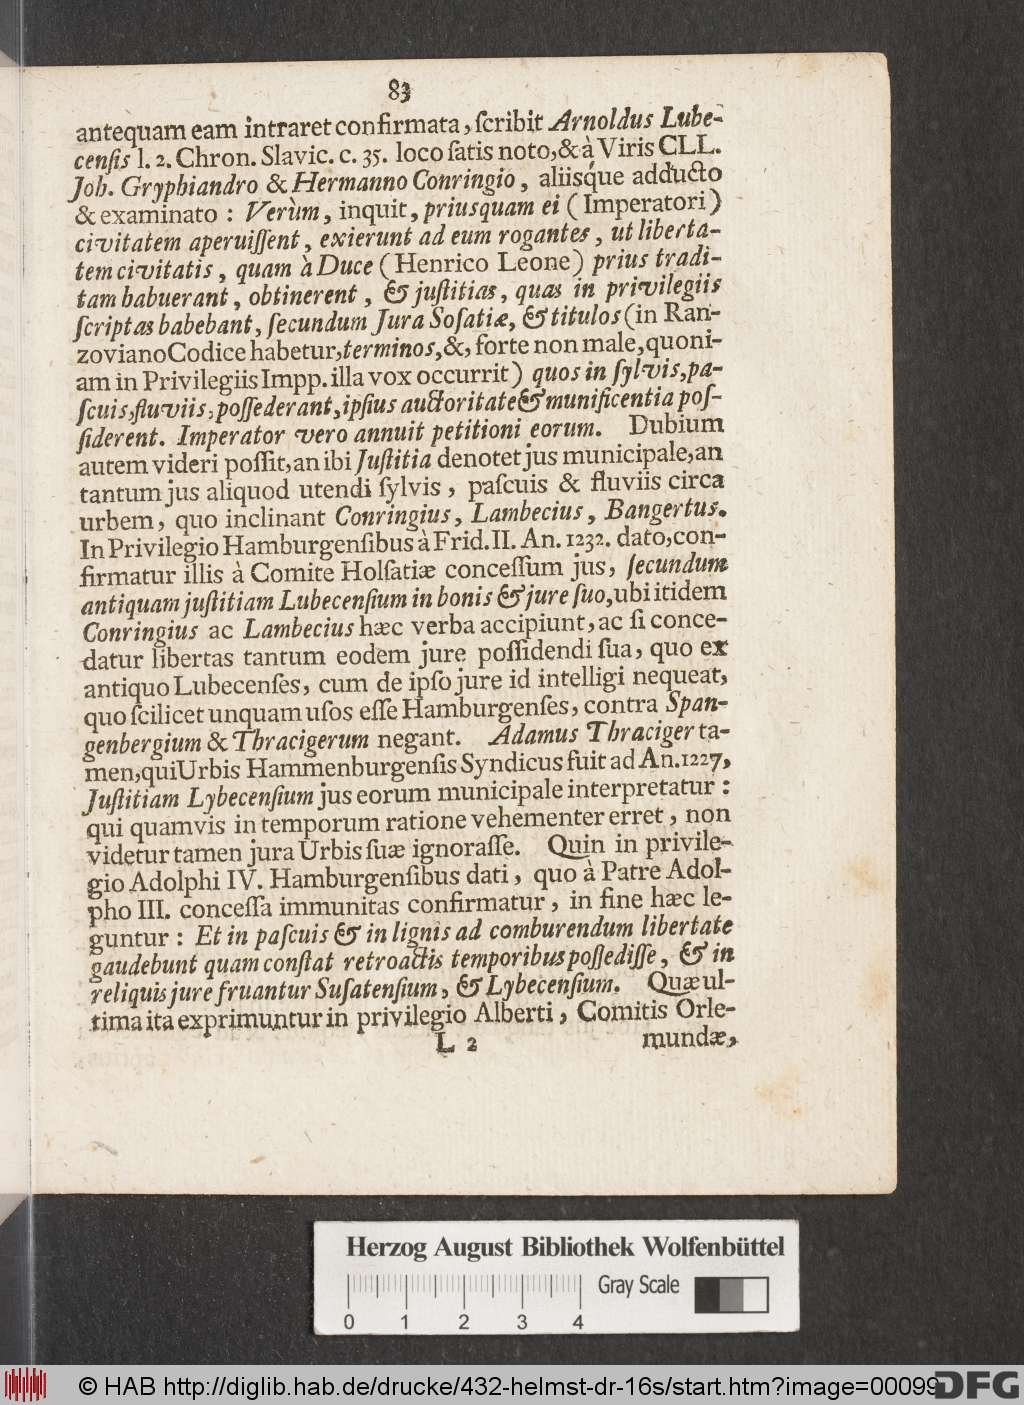 83
antequam eam intraret confirmata, ſcribit Arnoldus Lube-
cenſis l. 2. Chron. Slavic. c. 35. loco ſatis noto, & à Viris CLL.
Joh. Gryphiandro & Hermanno Conringio, aliisq́ue adducto
& examinato : Verùm, inquit, priusquam ei (Imperatori)
civitatem aperuiſſent, exierunt ad eum rogantes, ut liberta-
tem civitatis, quam à Duce (Henrico Leone) prius tradi-
tam habuerant, obtinerent, & juſtitias, quas in privilegiis
ſcriptas habebant, ſecundum Jura Soſatiæ, & titulos (in Ran-
zoviano Codice habetur, terminos, &, forte non male, quoni-
am in Privilegiis Impp. illa vox occurrit) quos in ſylvis, pa-
ſcuis, fluviis, poſſederant, ipſius auctoritate & munificentia poſ-
ſiderent. Imperator vero annuit petitioni eorum. Dubium
autem videri poſſit, an ibi Juſtitia denotet jus municipale, an
tantum jus aliquod utendi ſylvis, paſcuis & fluviis circa
urbem, quo inclinant Conringius, Lambecius, Bangertus.
In Privilegio Hamburgenſibus à Frid. II. An. 1232. dato, con-
firmatur illis à Comite Holſatiæ conceſſum jus, ſecundum
antiquam juſtitiam Lubecenſium in bonis & jure ſuo, ubi itidem
Conringius ac Lambecius hæc verba accipiunt, ac ſi conce-
datur libertas tantum eodem jure poſſidendi ſua, quo ex
antiquo Lubecenſes, cum de ipſo jure id intelligi nequeat,
quo ſcilicet unquam uſos eſſe Hamburgenſes, contra Span-
genbergium & Thracigerum negant. Adamus Thraciger ta-
men, qui Urbis Hammenburgenſis Syndicus fuit ad An. 1227,
Juſtitiam Lybecenſium jus eorum municipale interpretatur :
qui quamvis in temporum ratione vehementer erret, non
videtur tamen jura Urbis ſuæ ignoraſſe. Quin in privile-
gio Adolphi IV. Hamburgenſibus dati, quo à Patre Adol-
pho III. conceſſa immunitas confirmatur, in fine hæc le-
guntur : Et in paſcuis & in lignis ad comburendum libertate
gaudebunt quam conſtat retroactis temporibus poſſediſſe, & in
reliquis jure fruantur Suſatenſium, & Lybecenſium. Quæ ul-
tima ita exprimuntur in privilegio Alberti, Comitis Orle-
L 2 mundæ,
Herzog August Bibliothek Wolfenbüttel
Gray Scale
0 1 2 3 4
© HAB http://diglib.hab.de/drucke/432-helmst-dr-16s/start.htm?image=00099
DFG